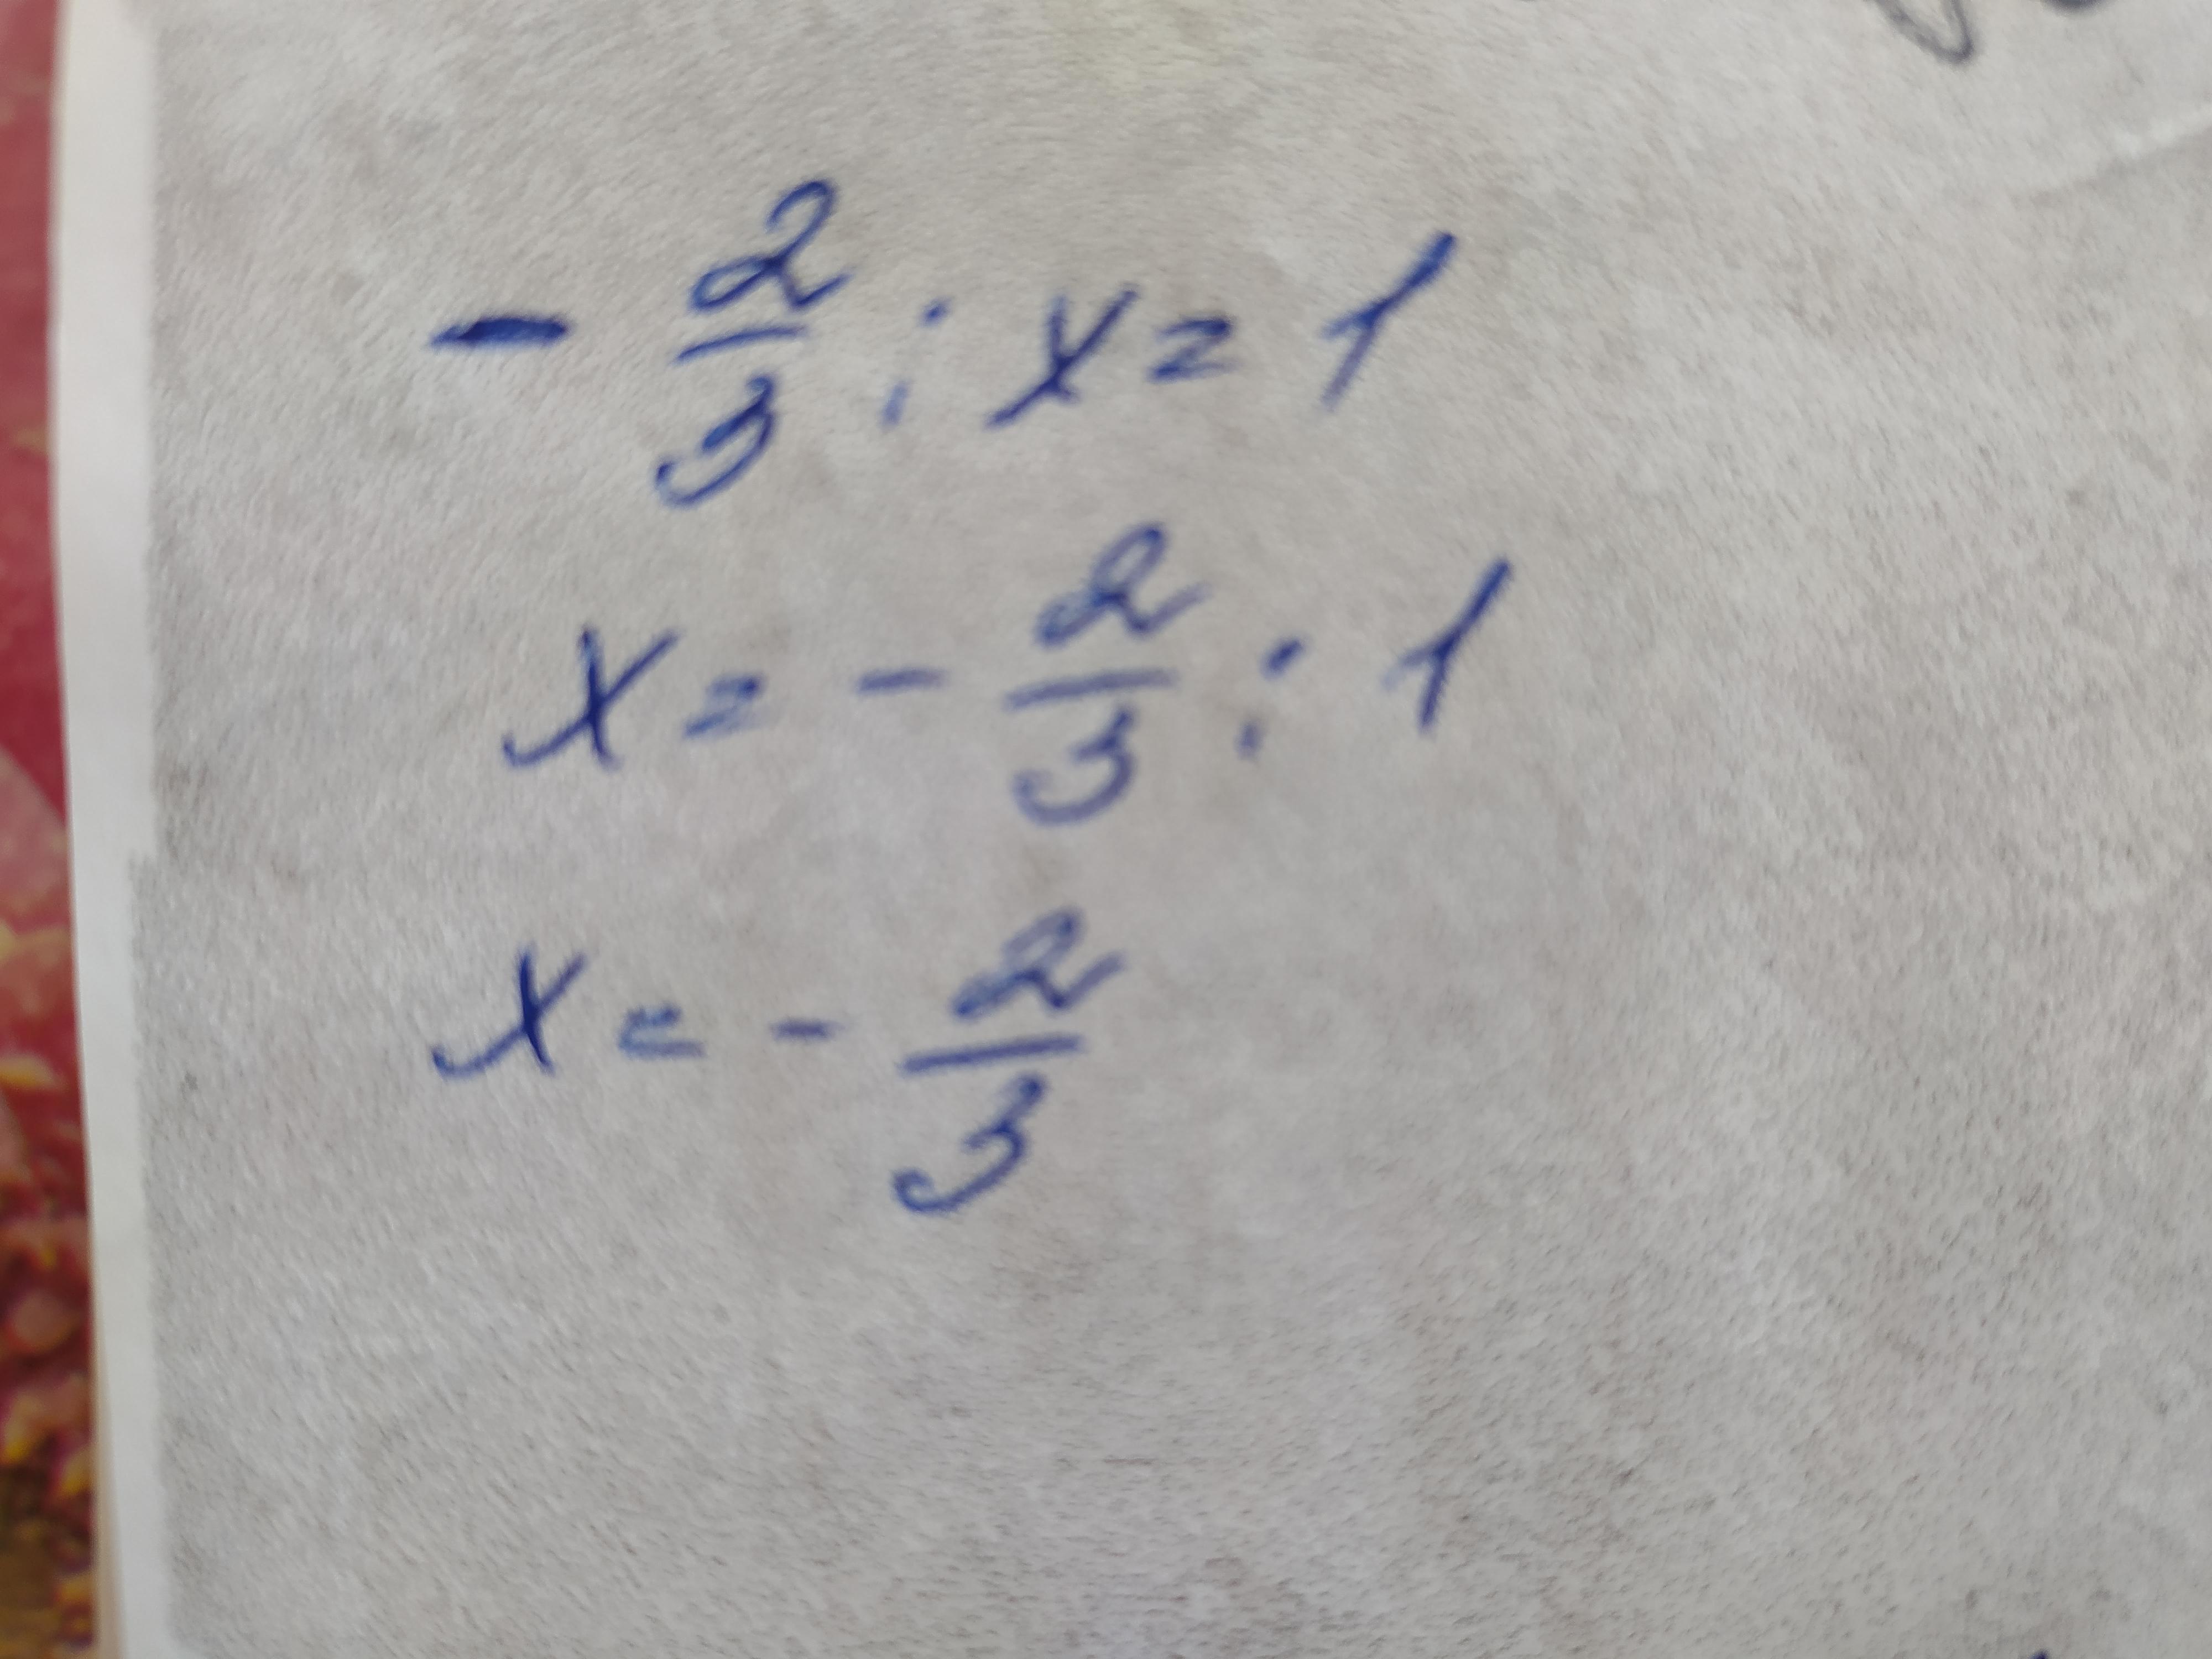 - 2/3 : x = 1
x = - 2/3 : 1
x = - 2/3